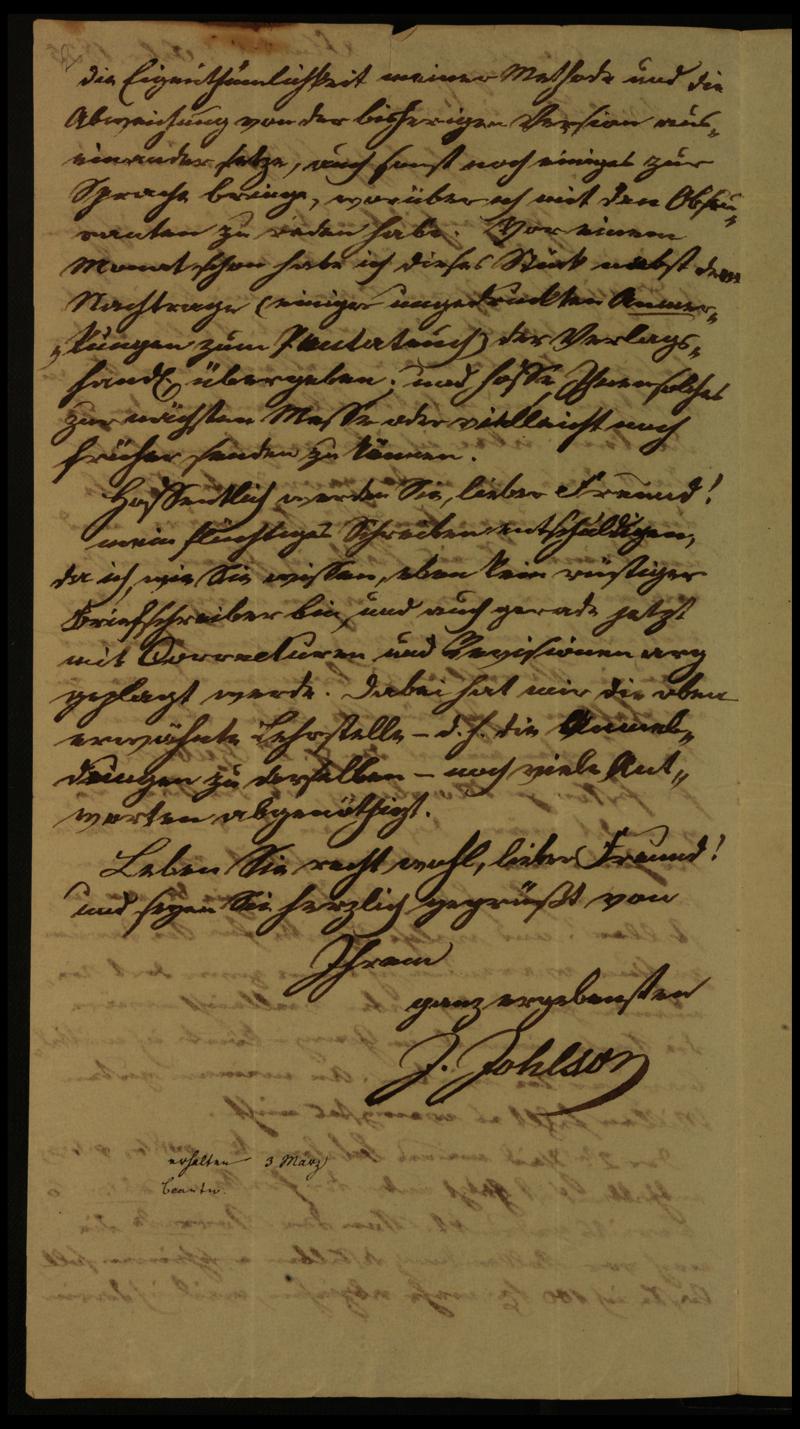 die Eigenthümlichkeit meiner Methode und die
Abweichung von der bisherigen Version aus-
einander setze, auch sonst noch einiges zur
Sprache bringe, worüber ich mit den Obscu-
ranten zu reden habe. Vor einem
Monat schon habe ich dieses Stück nebst dem
Nachtrage (einiger ungedruckten Anmer-
kungen zum Pentateuch) der Verlags-
handl. übergeben; und hoffe, Ihnen solches
zur nächsten Messe oder vielleicht noch
früher senden zu können.
Hoffentlich werden Sie, lieber Freund!
mein flüchtiges Schreiben entschuldigen,
da ich, wie Sie wissen, eben kein rüstiger
Briefschreiber bin, und auch gerade jetzt
mit Correcturen und Revisionen arg
geplagt werde. Dabei hat mir die oben
erwähnte Lehrstelle – d. h. die Anmel-
dungen zu derselben – noch viele Ant-
worten abgenöthigt.
Leben Sie recht wohl, lieber Freund!
und seyen Sie herzlich gegrüßt von
Ihrem
ganz ergebensten
J. Johlson
erhalten 3 März
beantw.